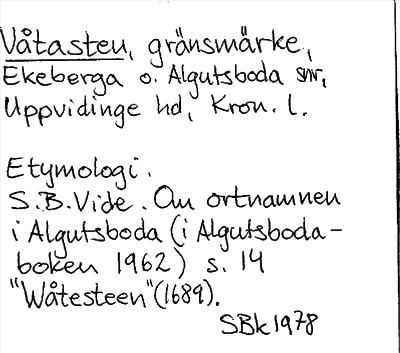 Våtasten, gränsmärke,
Ekeberga o. Algutsboda snr,
Uppvidinge hd, Kron. l.
Etymologi.
S.B.Vide. Om ortnamnen
i Algutsboda (i Algutsboda-
boken 1962) s. 14
"Wåtesteen" (1689).
SBk 1978